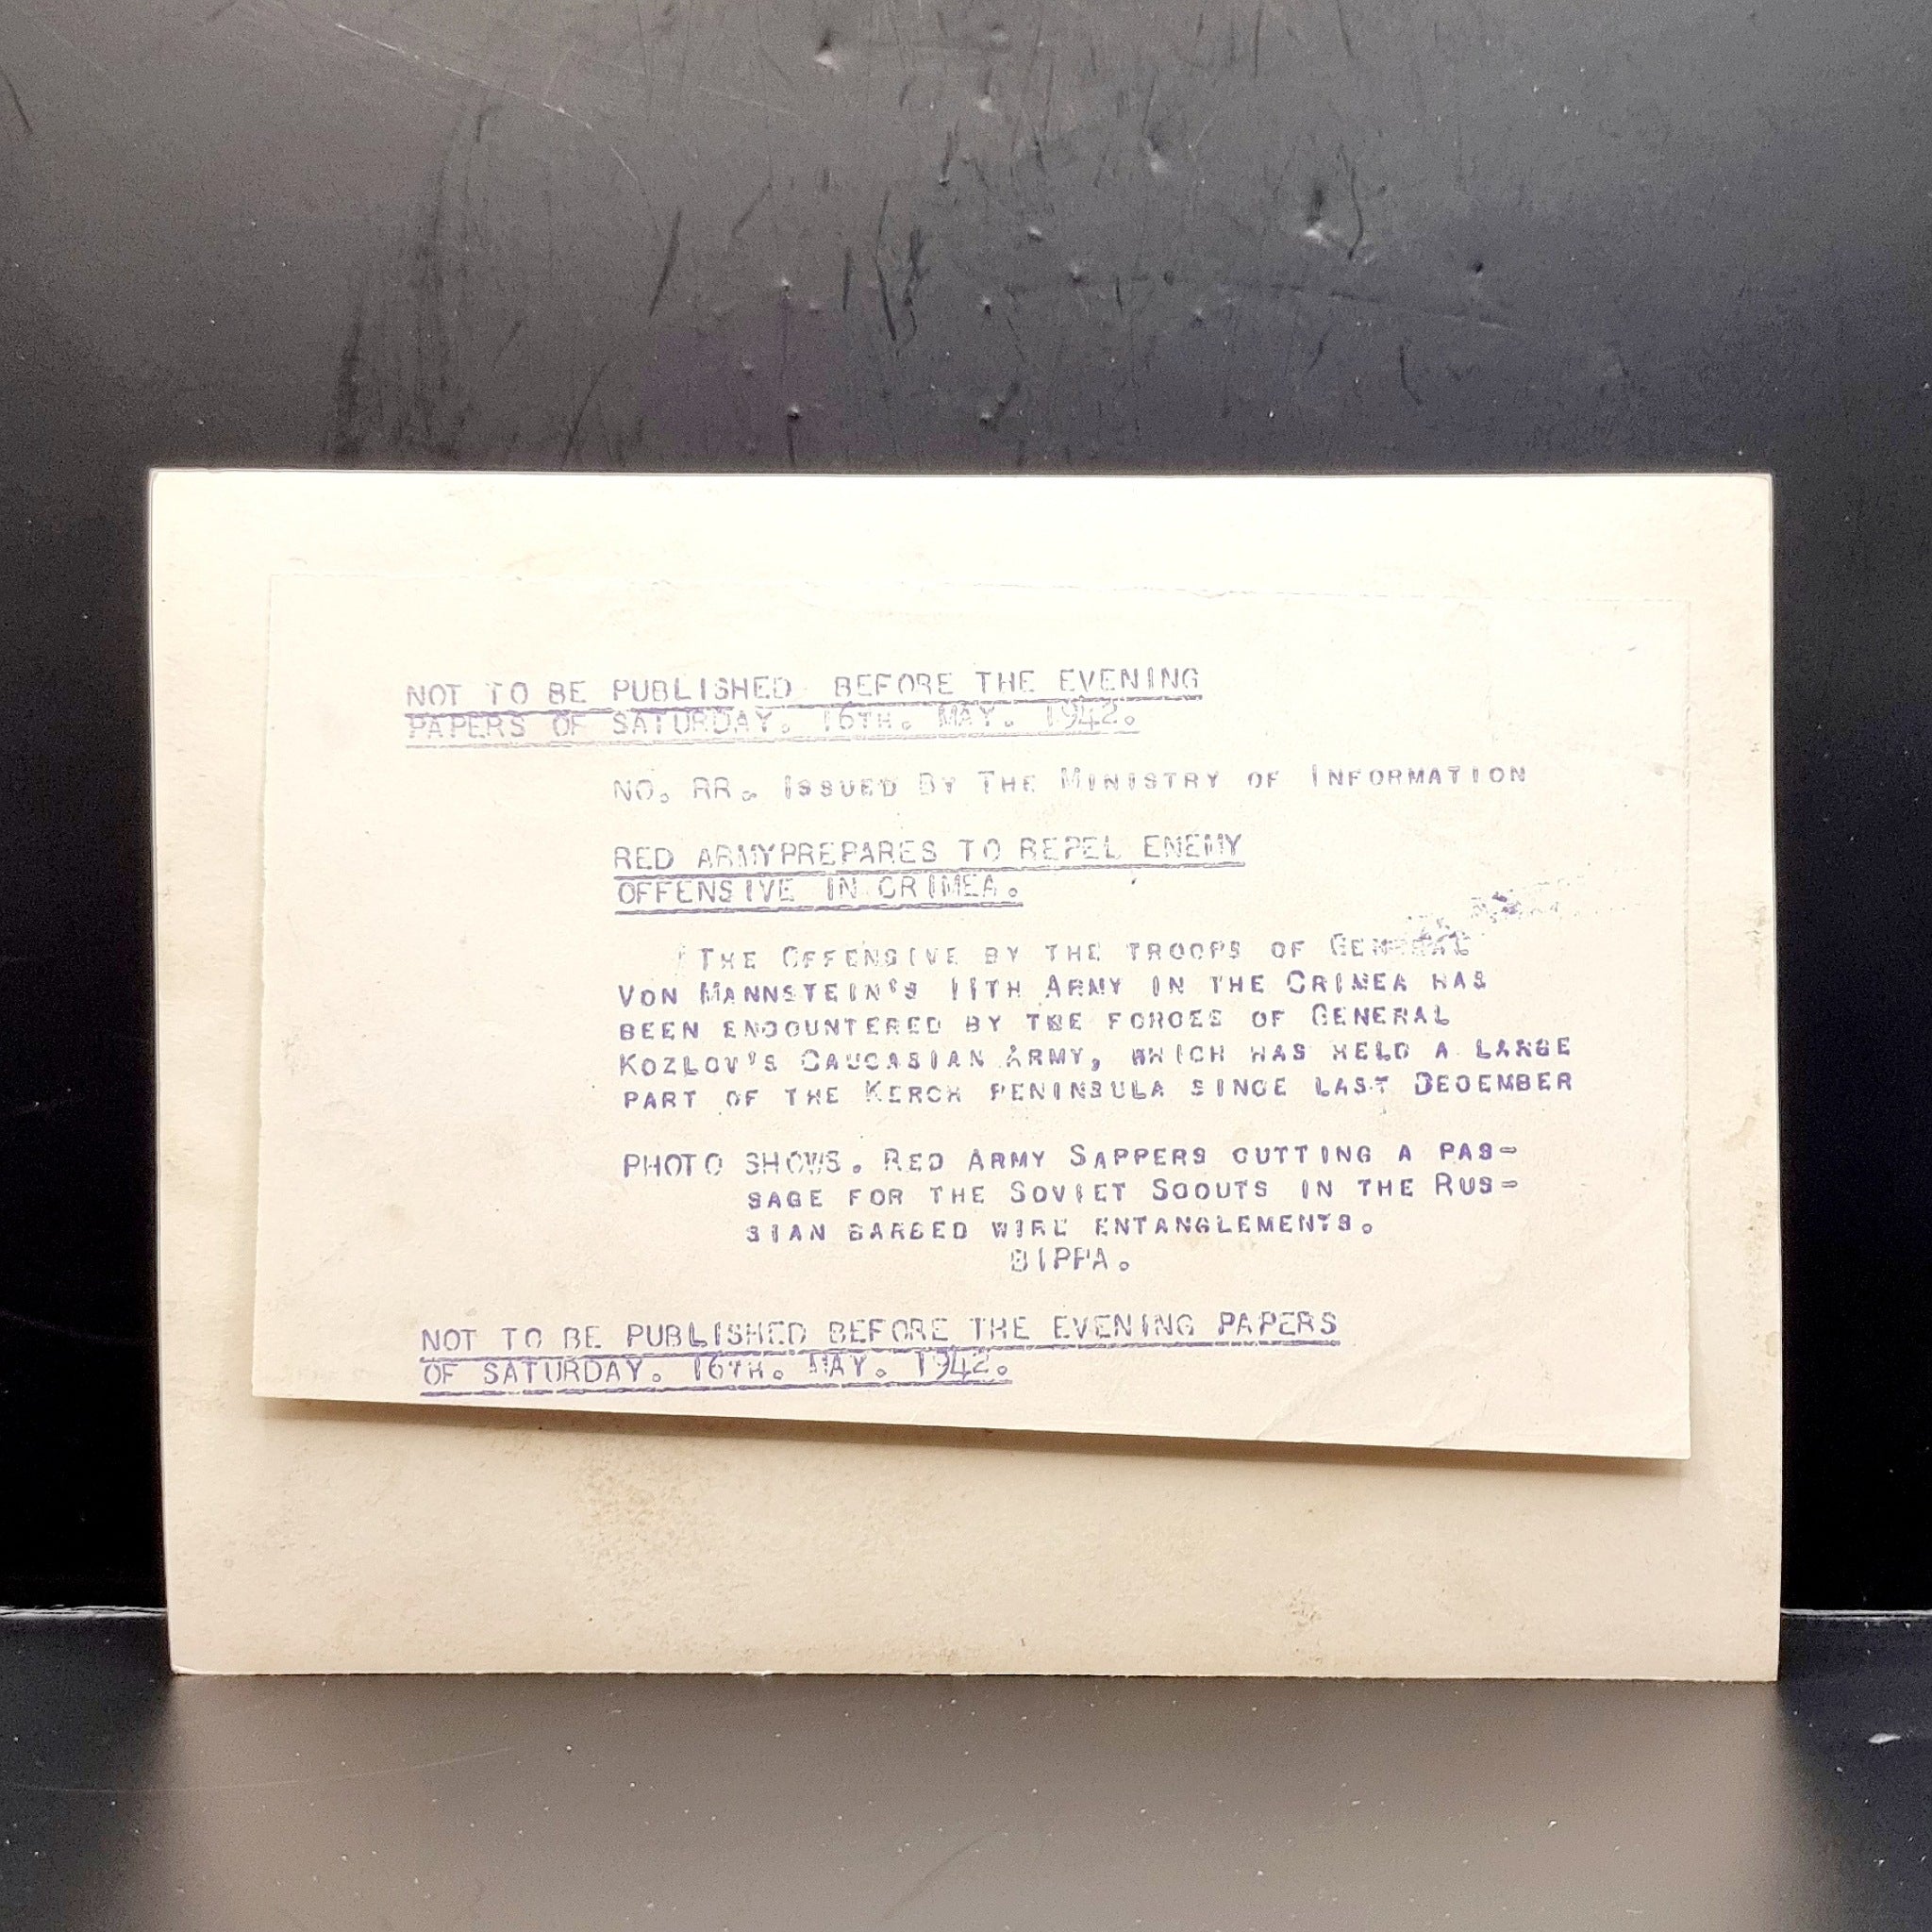 NOT TO BE PUBLISHED BEFORE THE EVENING
PAPERS OF SATURDAY. 16TH. MAY. 1942.
NO. RR. ISSUED BY THE MINISTRY OF INFORMATION
RED ARMYPREPARES TO REPEL ENEMY
OFFENSIVE IN CRIMEA.
THE OFFENSIVE BY THE TROOPS OF GENERAL
VON MANNSTEIN'S 11TH ARMY IN THE CRIMEA HAS
BEEN ENCOUNTERED BY THE FORCES OF GENERAL
KOZLOV'S CAUCASIAN ARMY, WHICH HAS HELD A LARGE
PART OF THE KERCH PENINSULA SINCE LAST DECEMBER
PHOTO SHOWS. RED ARMY SAPPERS CUTTING A PAS=
SAGE FOR THE SOVIET SCOUTS IN THE RUS=
SIAN BARBED WIRE ENTANGLEMENTS.
BIPPA.
NOT TO BE PUBLISHED BEFORE THE EVENING PAPERS
OF SATURDAY. 16TH. MAY. 1942.